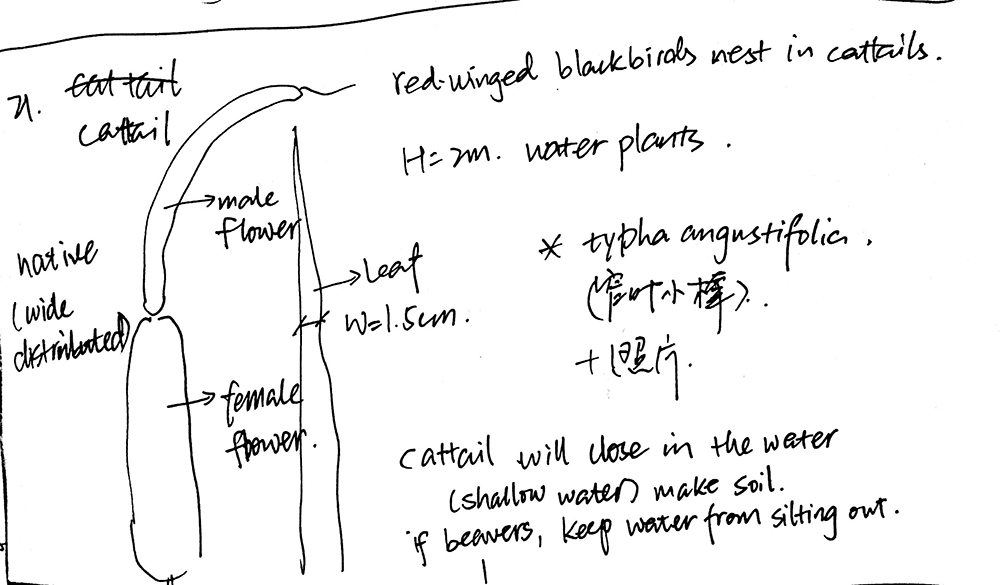 cat tail
cattail
red-winged blackbirds nest in cattails.
H=2m. water plants.
male
flower
native
(wide
distributed)
leaf
W=1.5cm.
* typha angustifolia.
叶小
+ 照片.
female
flower.
cattail will close in the water
(shallow water) make soil.
if beavers, keep water from silting out.